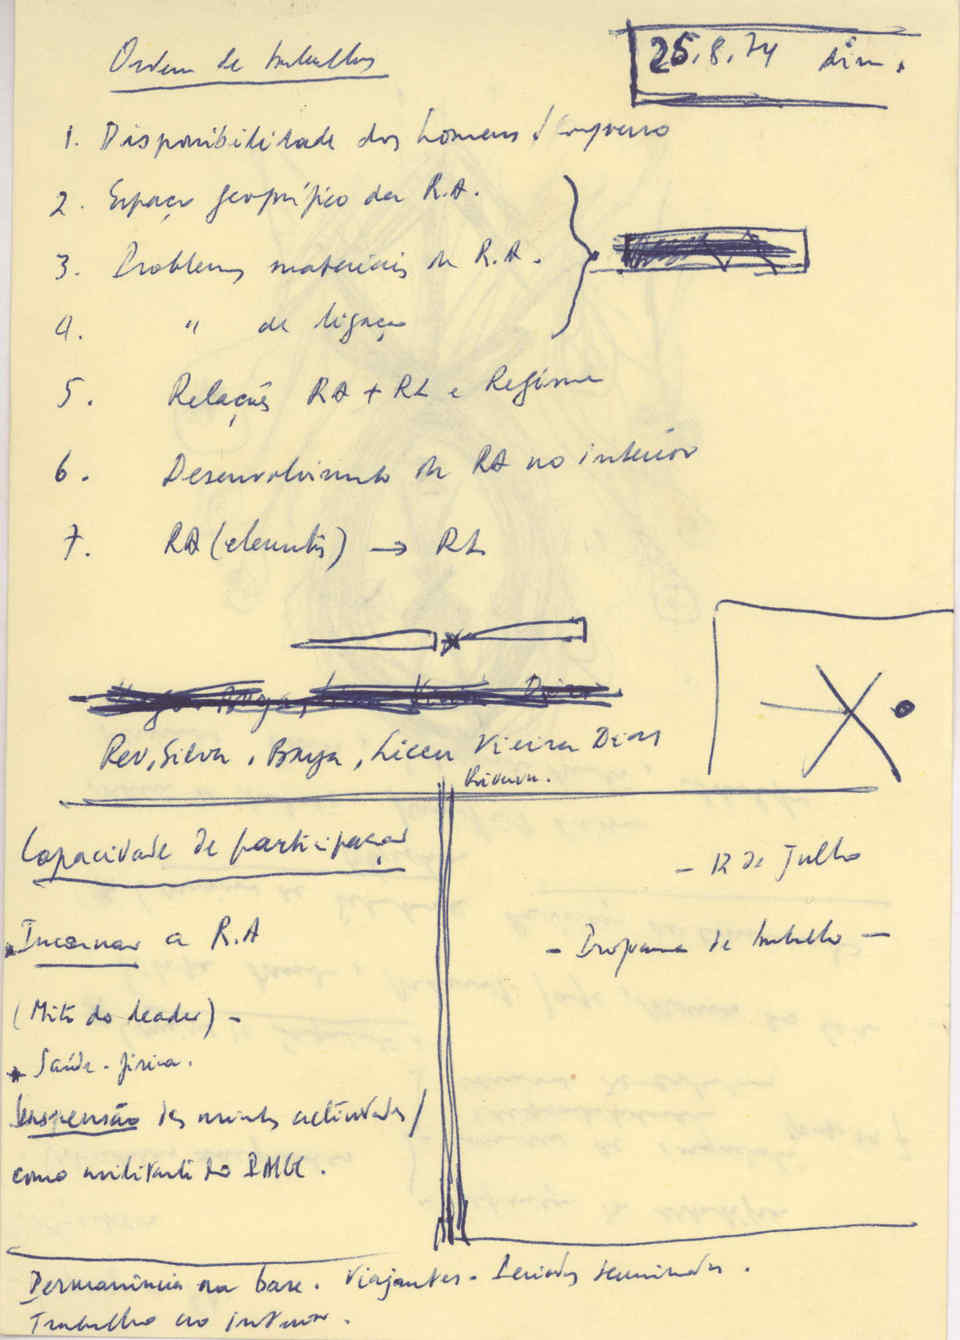 Ordem de trabalhos
25.8.74 dim.
1. Disponibilidade dos homens / Congresso
2. Espaço geográfico da R.A.
3. Problemas materiais da R.A.
4. " de ligação
5. Relações RA + RL e Regime
6. Desenvolvimento da RA no interior
7. RA (elementos) → RL
Rev, Silva, Braga, Liceu Vieira Dias
Capacidade de participação
- 12 de Julho
Incarnar a R.A
- Programa de trabalho -
(Mito do leader) -
Saúde-física.
Suspensão das minhas actividades /
como militante do
Permanência na base. Viajantes - Periodos terminados.
Trabalho no interior.